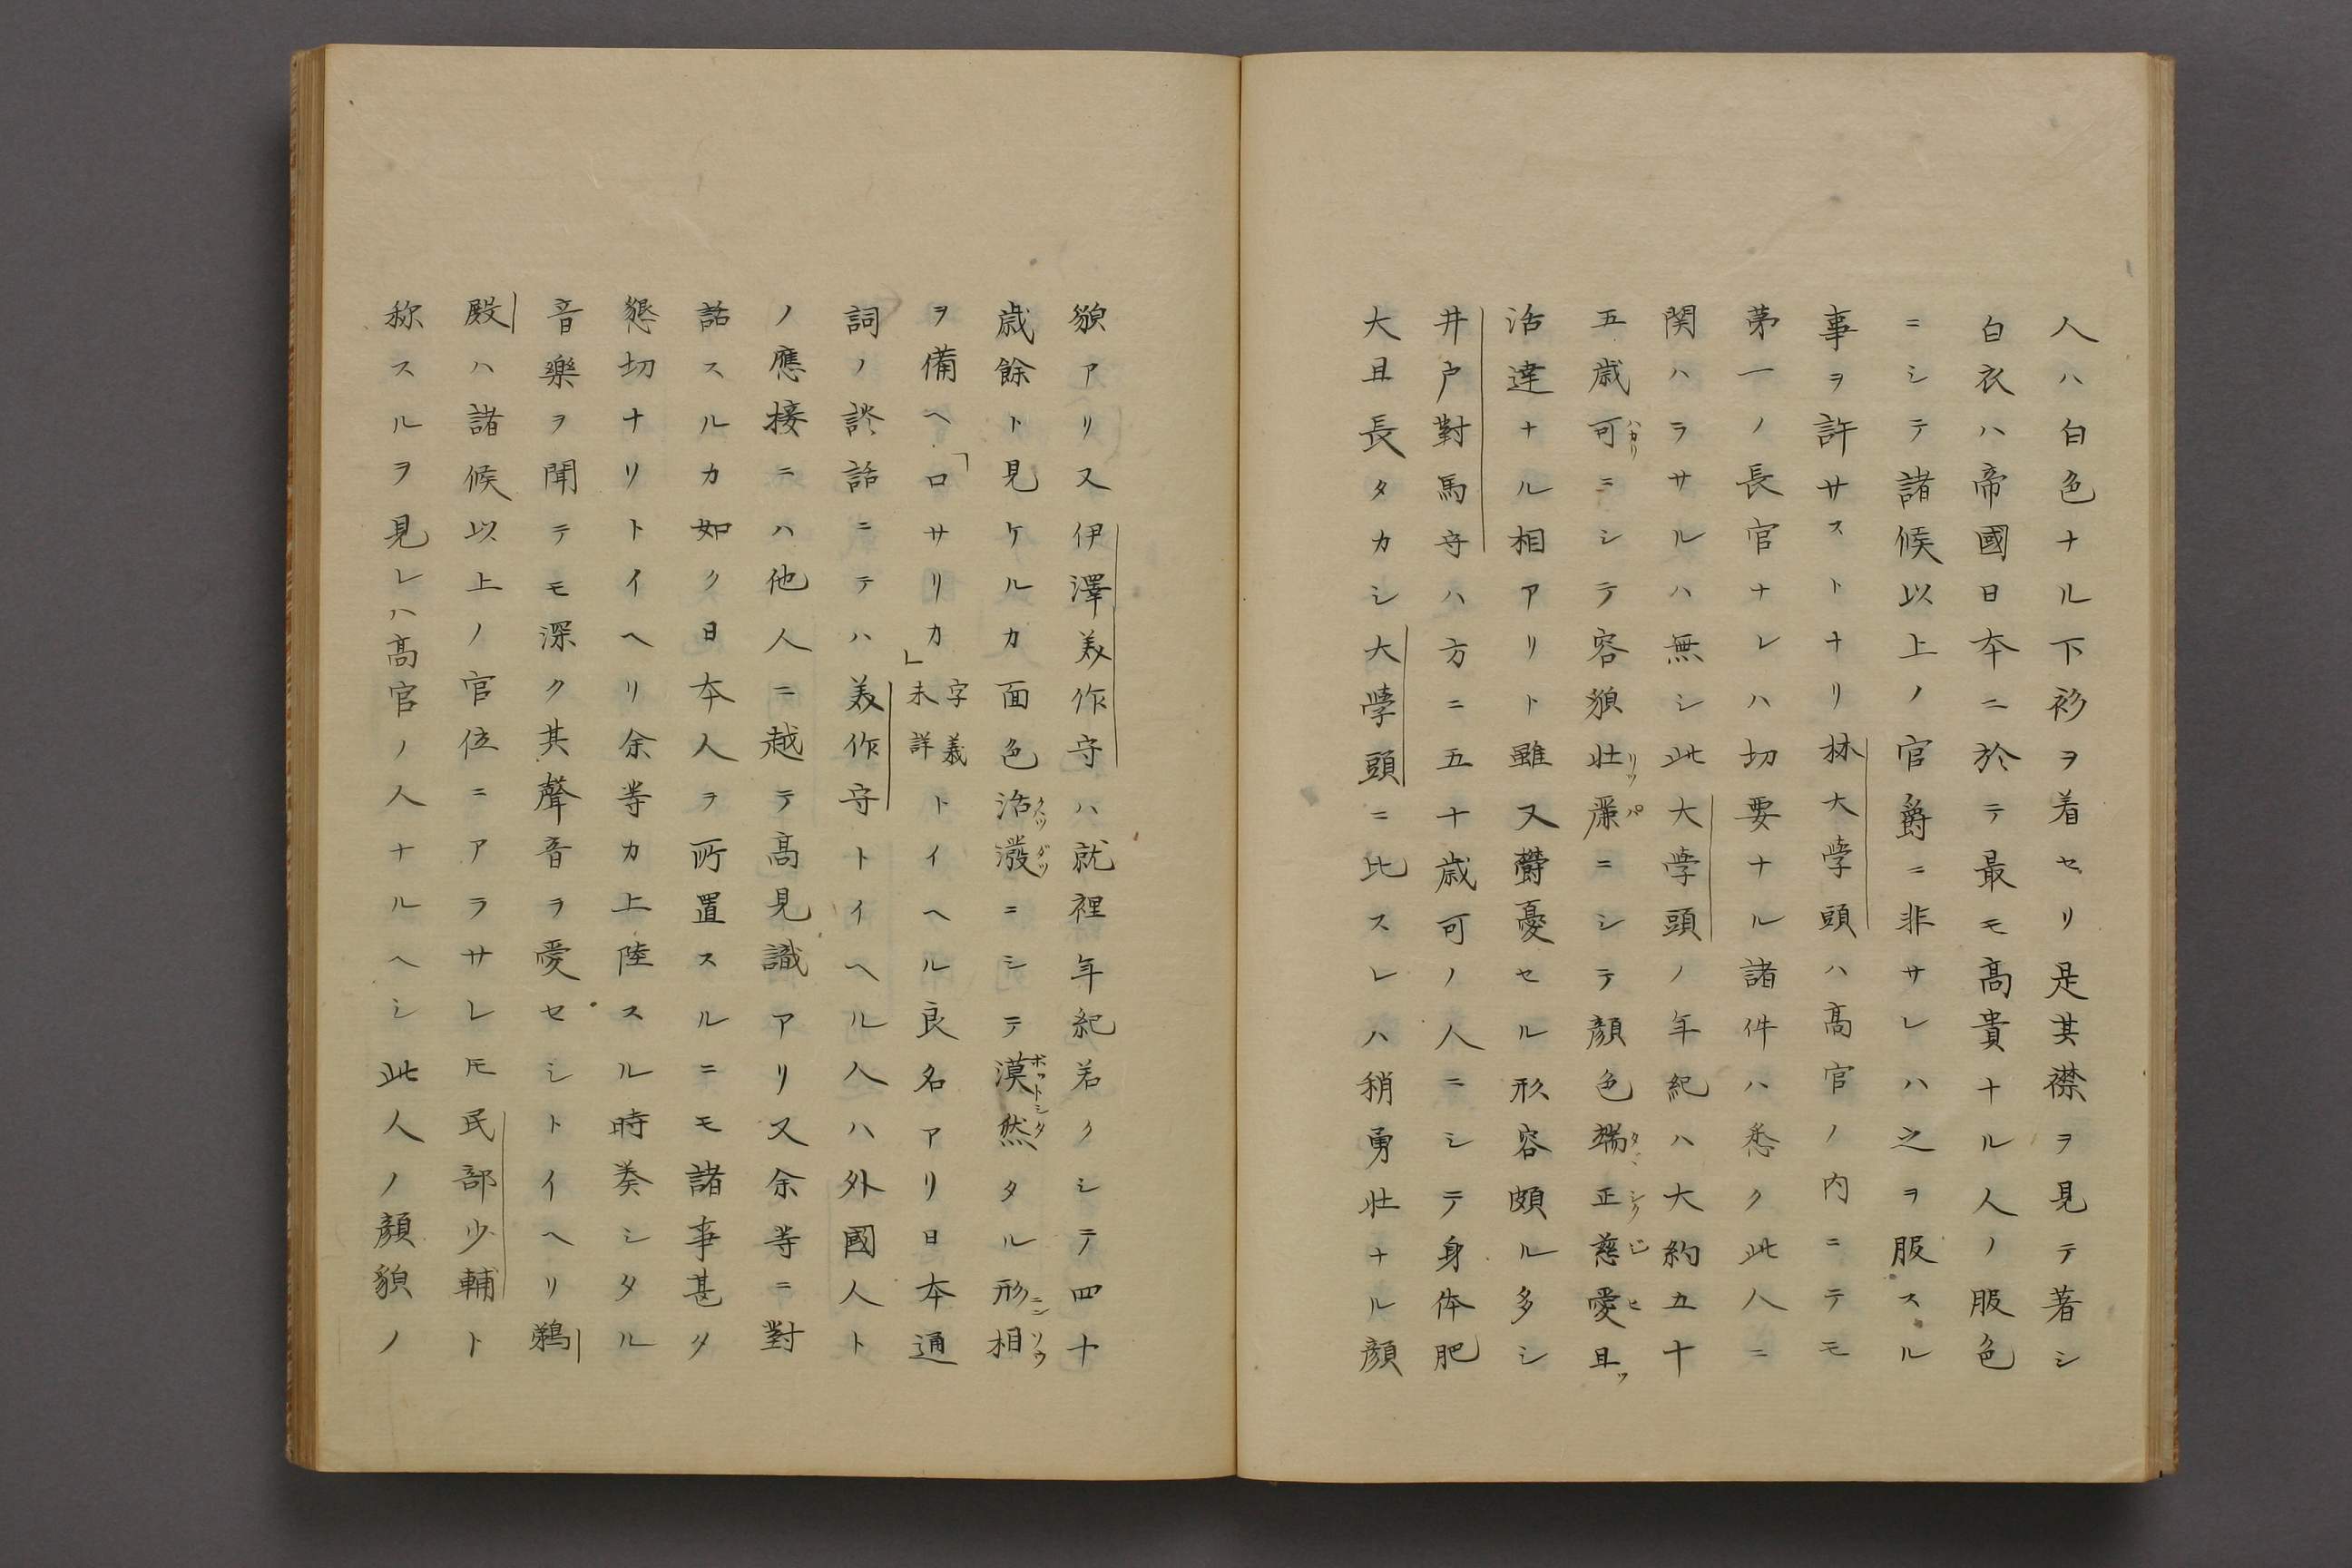 人ハ白色ナル下衫ヲ着セリ是其襟ヲ見テ著シ
白衣ハ帝國日本ニ於テ最モ高貴ナル人ノ服色
ニシテ諸候以上ノ官爵ニ非サレハ之ヲ服スル
事ヲ許サストナリ林大學頭ハ高官ノ内ニテモ
第一ノ長官ナレハ切要ナル諸件ハ悉ク此人ニ
関ハラサルハ無シ此大學頭ノ年紀ハ大約五十
五歳可ハカリニシテ容貌壮リツ厳パニシテ顔色端タヽ正シク慈ジ愛ヒ且ツ
活達ナル相アリト雖又欝憂セル形容頗ル多シ
井戸對馬守ハ方ニ五十歳可ノ人ニシテ身体肥
大且長タカシ大學頭ニ比スレハ稍勇壮ナル顔
貌アリ又伊澤美作守ハ就裡年紀若クシテ四十
歳餘ト見ケルカ面色活クハツ潑ダツニシテ漠然ボットシタタル形ニン相ソウ
ヲ備ヘ「ロサリカ」字義未詳トイヘル良名アリ日本通
詞ノ話ニテハ美作守トイヘル人ハ外國人ト
ノ應接ニハ他人ニ越テ高見識アリ又余等ニ對
話スルカ如ク日本人ヲ所置スルニモ諸事甚タ
懇切ナリトイヘリ余等カ上陸スル時奏シタル
音樂ヲ聞テモ深ク其聲音ヲ愛セシトイヘリ鵜
殿ハ諸候以上ノ官位ニアラサレ𪜈民部少輔ト
称スルヲ見レハ高官ノ人ナルヘシ此人ノ顔貌ノ